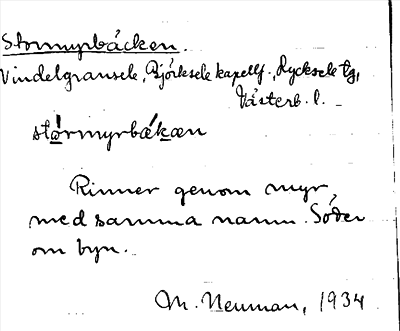 Stormyrbäcken.
Vindelgransele, Björksele kapellf., Lycksele tg,
Västerb. l.
stormyrbækæn
Rinner genom myr
med samma namn. Söder
om byn.
M. Neuman, 1934